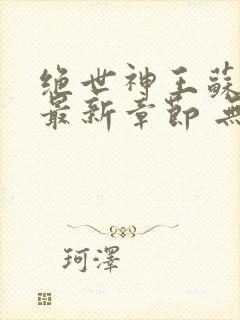 绝世神王蘇
最新章節 無
珂澤